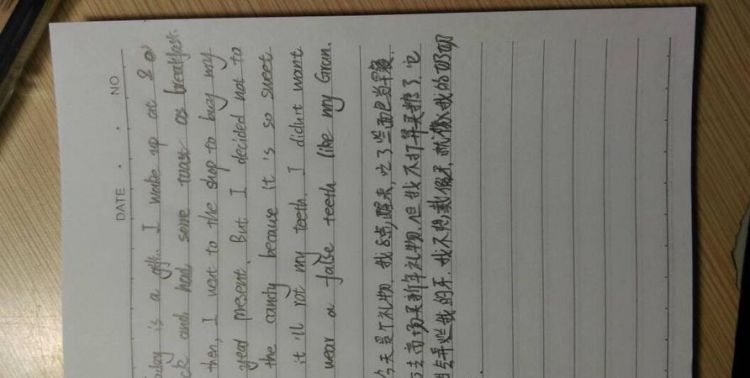 DATE · · NO
day is a gift. I wake up at 8 o
ck and had some toast as breakfast.
then, I went to the shop to buy my
year present. But I decided not to
the candy because it's so sweet.
it'll rot my teeth. I didn't want
wear a false teeth like my Gran.
今天是个礼物 我8点醒来,吃了些面包当早餐.
去商场买新年礼物.但我不打算买糖了,它
会弄烂我的牙.我不想戴假牙,就像我的奶奶